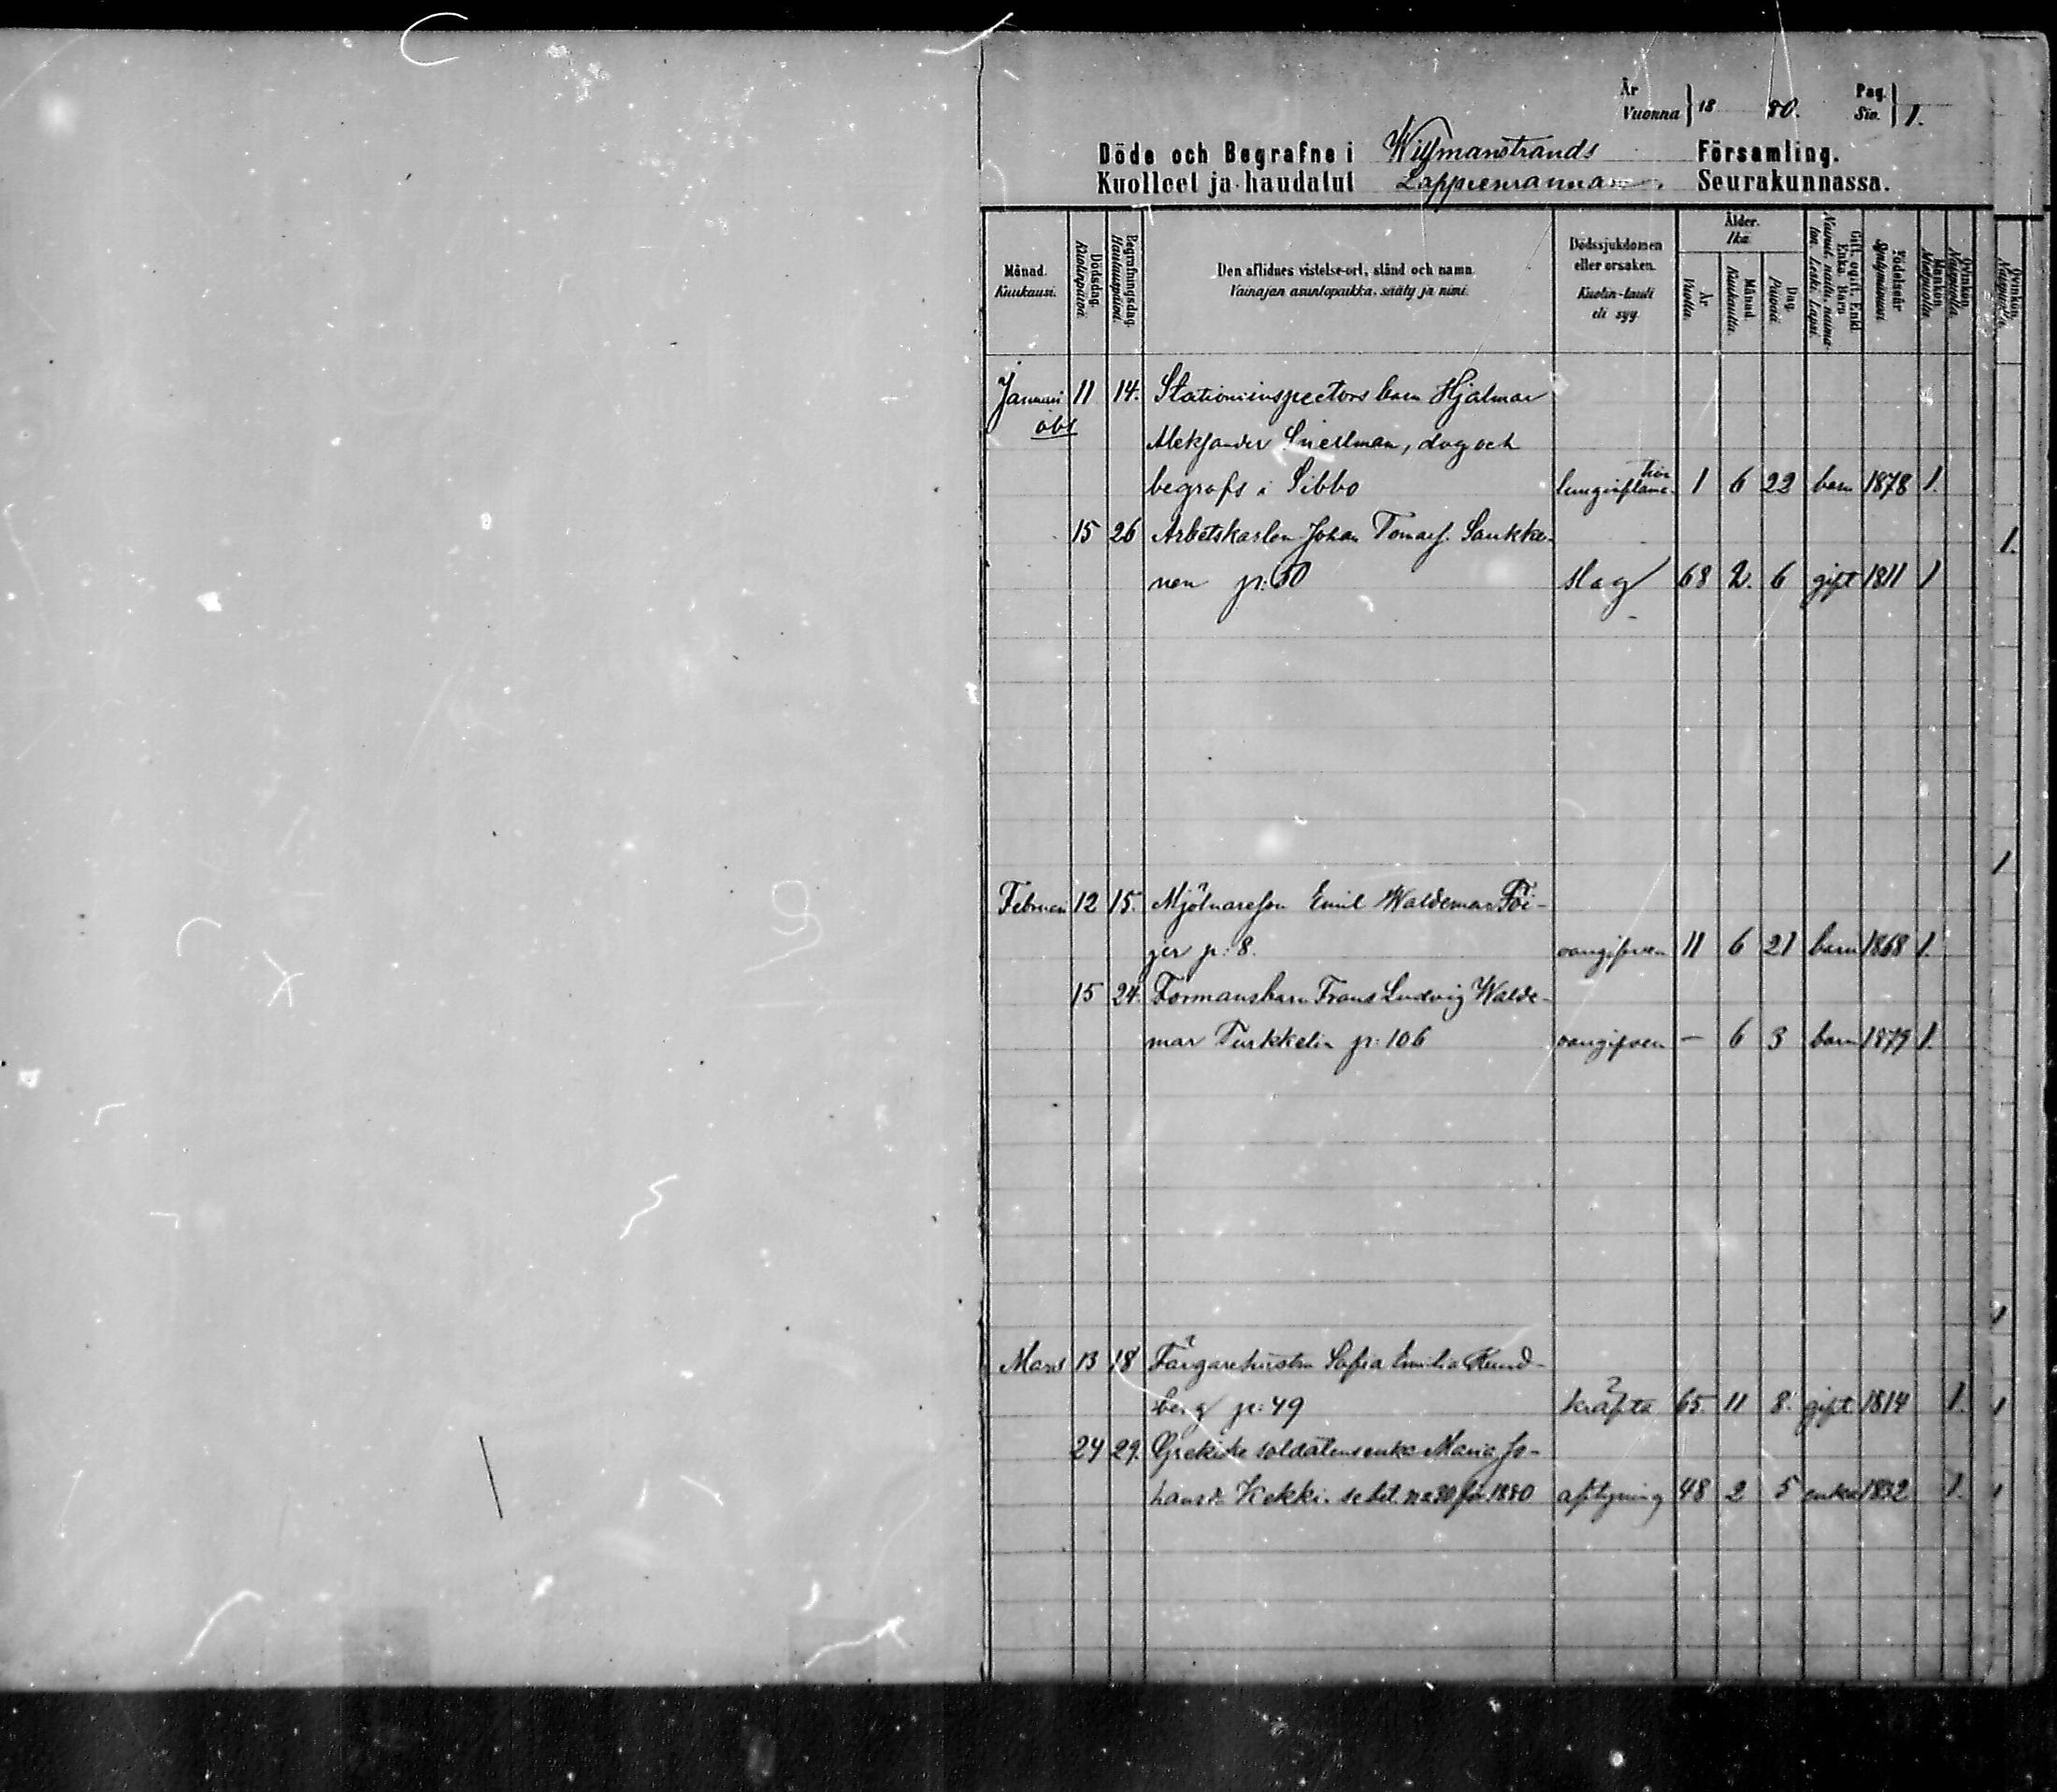 År
Vuonna } 18 80.
Pag.
Siv. } 1.
Döde och Begrafne i Willmanstrands Församling.
Kuolleet ja haudatut Lappeenrannan. Seurakunnassa.
Månad. Kuukausi.
Dödsdag. Kuolinpäivä.
Begrafningsdag. Hautauspäivä.
Den aflidnes vistelse-ort, stånd och namn.
Vainajan asuntopaikka, sääty ja nimi.
Dödssjukdomen eller orsaken.
Kuolin-tauti eli syy.
Ålder. Ikä.
År Vuotta.
Månad. Kuukautta.
Dag. Päivää.
Gift, ogift, Enkl. Enka. Barn
Nainut, naitu, naimaton, Leski, Lapsi.
Födelseår Syntymävuosi
Mankön. Miespuolia.
Qvinkön. Naispuolia.
Qvinkön. Naispuolia.
Januari 11 14. Stationsinspectors barn Hjalmar
obs Aleksander Snellman, dog och
begrafs i Sibbo lunginflama-tion 1 6 22 barn 1878 1.
15 26 Arbetskarlen Johan Tomasf. Saukko- 1.
nen p: 50 slag 68 2. 6 gift 1811 1
1
Februari 12 15. Mjölnareson Emil Waldemar Föi-
jer p: 8. oangifven 11 6 21 barn 1868 1.
15 24. Formansbarn Frans Ludvig Walde-
mar Turkkelin p: 106 oangifven — 6 3 barn 1879 1.
1
Mars 13 18 Färgarehustru Sofia Emilia Rund-
berg p: 49 kräfta 65. 11 8. gift 1814 1. 1
24 29. Grekiske soldatensenka Maria Jo-
hansd. Kekki. se bet. no 30 för 1880 aftyning 48 2 5 enka 1832 1. 1